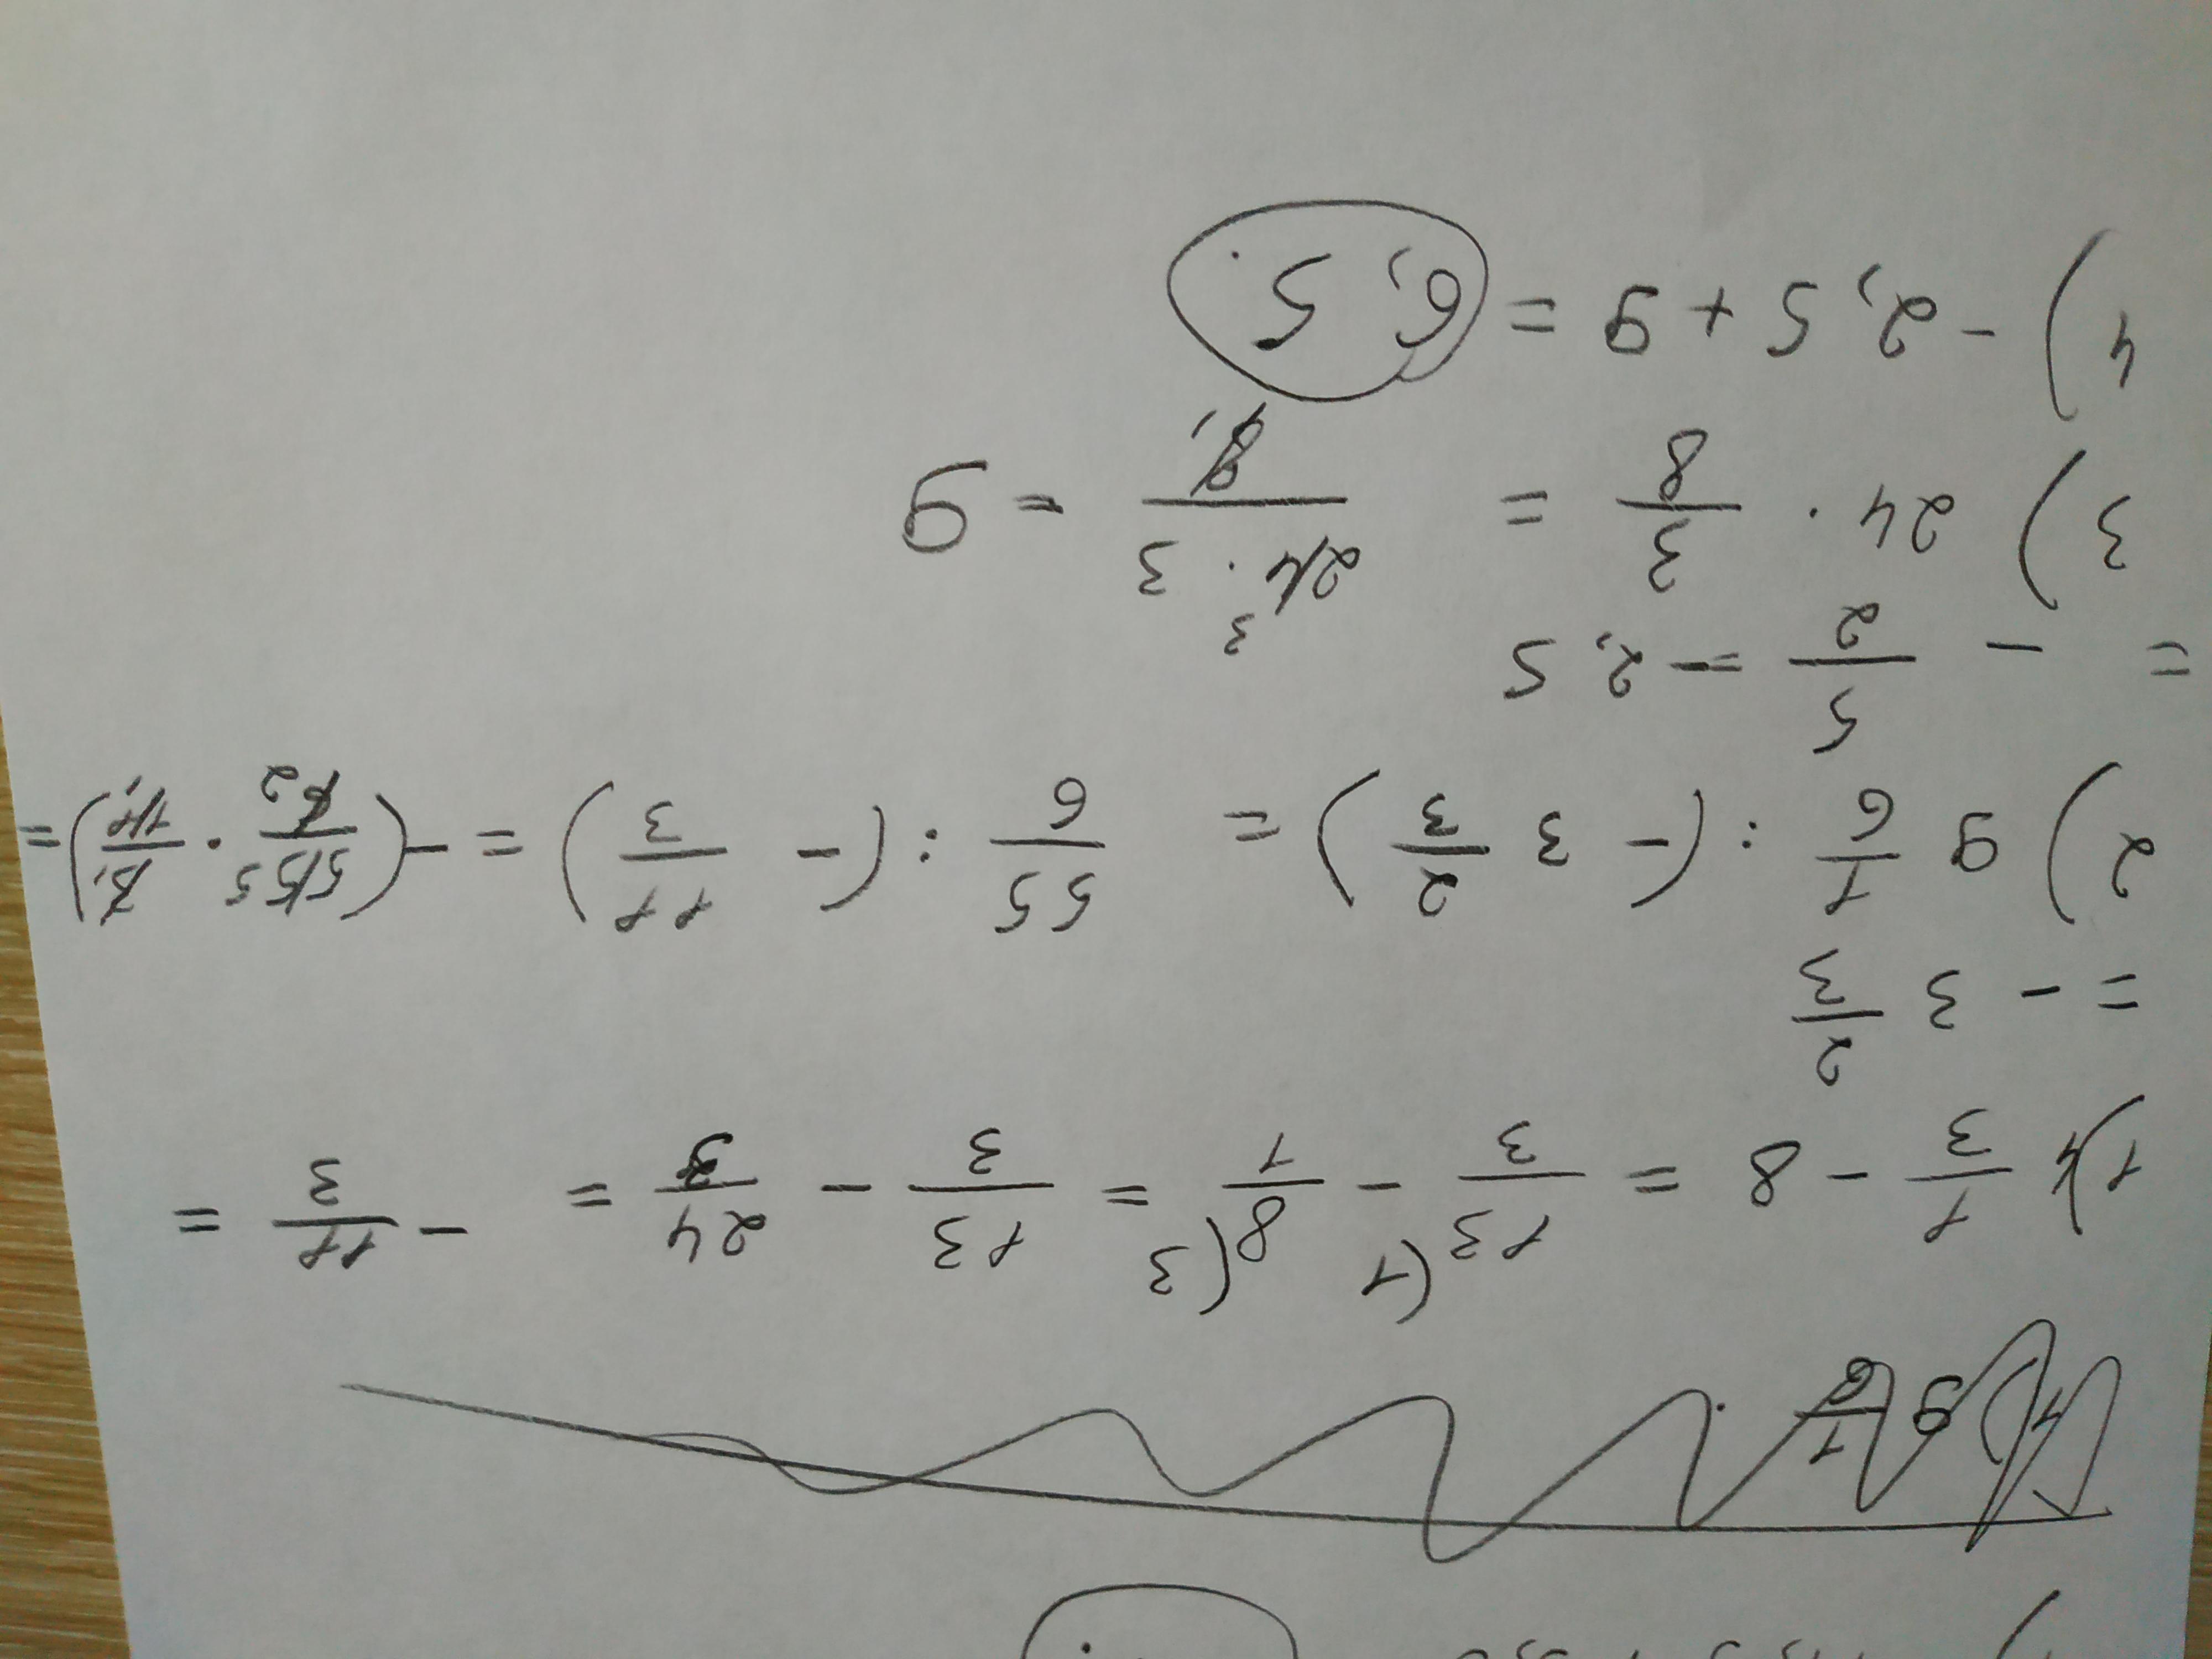 1) 4 1/3 - 8 = 13/3 (1 - 8/1 (3 = 13/3 - 24/3 = - 11/3 =
= - 3 2/3
2) 9 1/6 : (- 3 2/3) = 55/6 : (- 11/3) = -(55 5/6 2 · 3 1/11 1) =
= - 5/2 = -2,5
3) 24 · 3/8 = 24 3 · 3/8 1 = 9
4) -2,5 + 9 = 6,5.